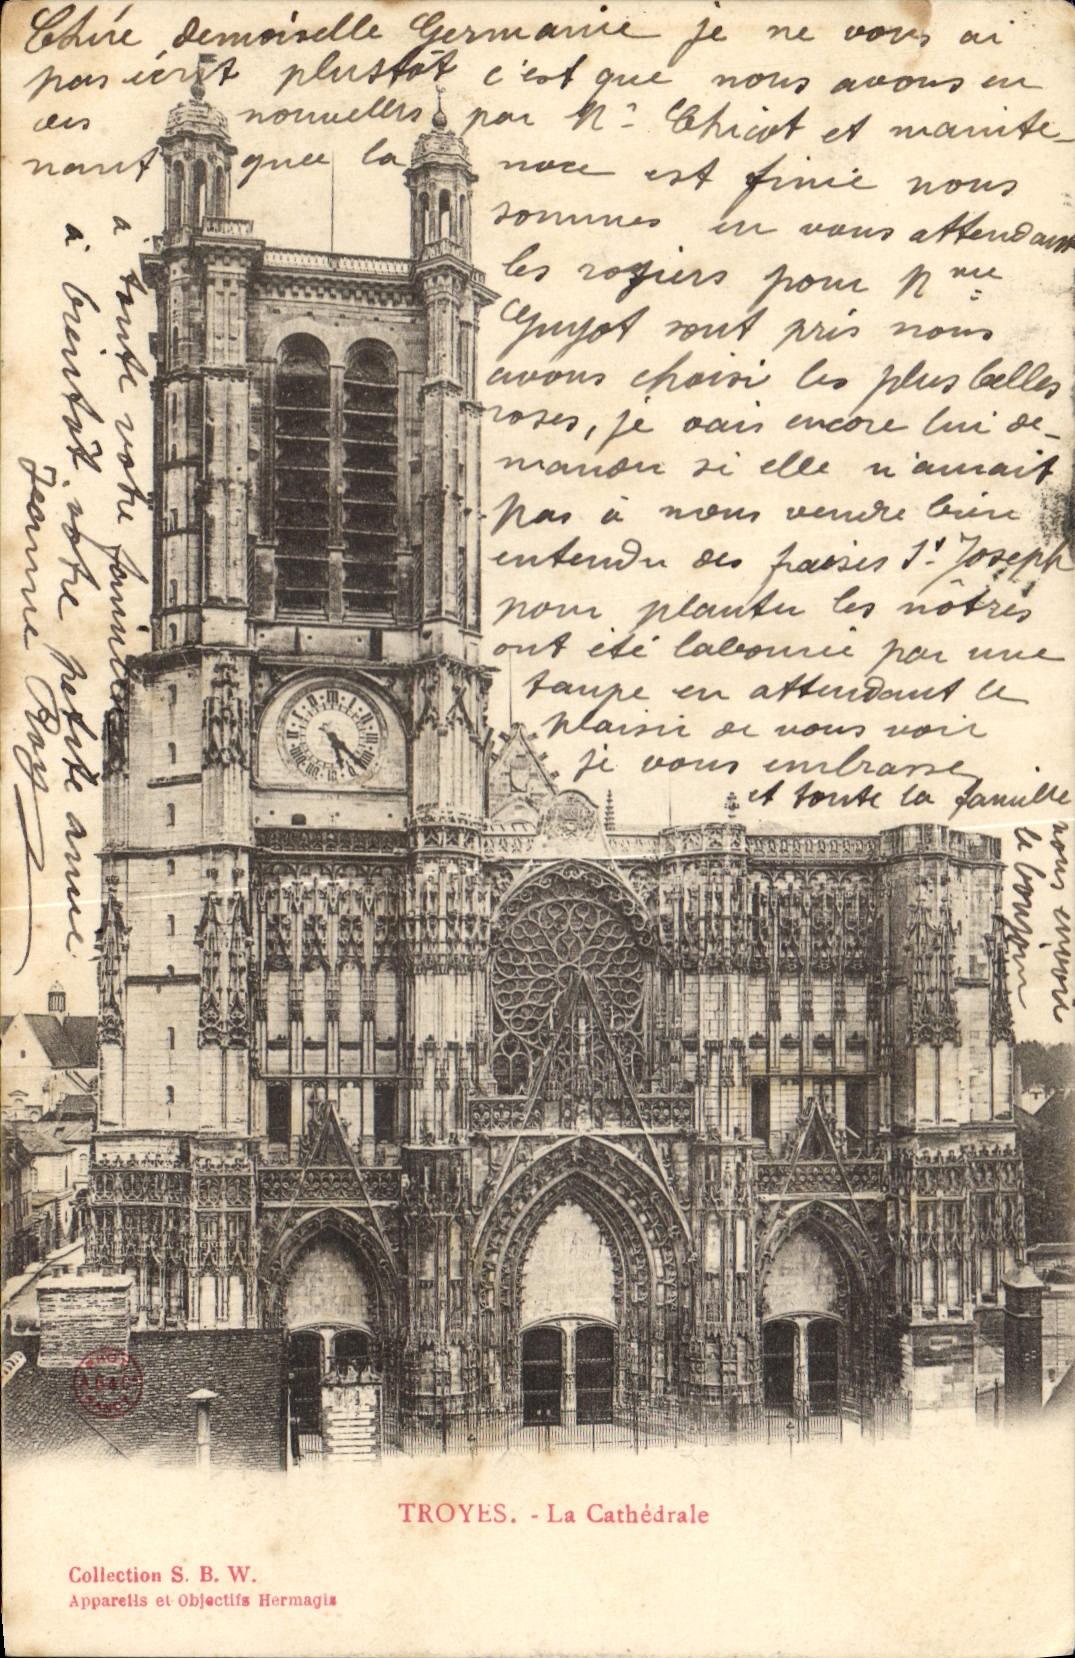 Chére demoiselle Germanie je ne vous ai
pas écrit plustôt c'est que nous avous eu
des nouvelles par Mr Chicot et mainte-
nant que la noce est finie nous
sommes en vous attendant
les rosiers pour Mme
Guyot sont pris nous
avons choisi les plus belles
roses, je vais encore lui de-
mander si elle n'aurait
pas à nous vendre bien
entendu des fraisies St Joseph
pour planter les nôtres
ont été labourée par une
taupe en attendant le
plaisir de vous voir
je vous embrasse
et toute la famille
vous envoie
le bonjour
a toute votre famille
a bientôt votre petite amie
Jeanne Roy
TROYES. - La Cathédrale
Collection S. B. W.
Appareils et Objectifs Hermagis